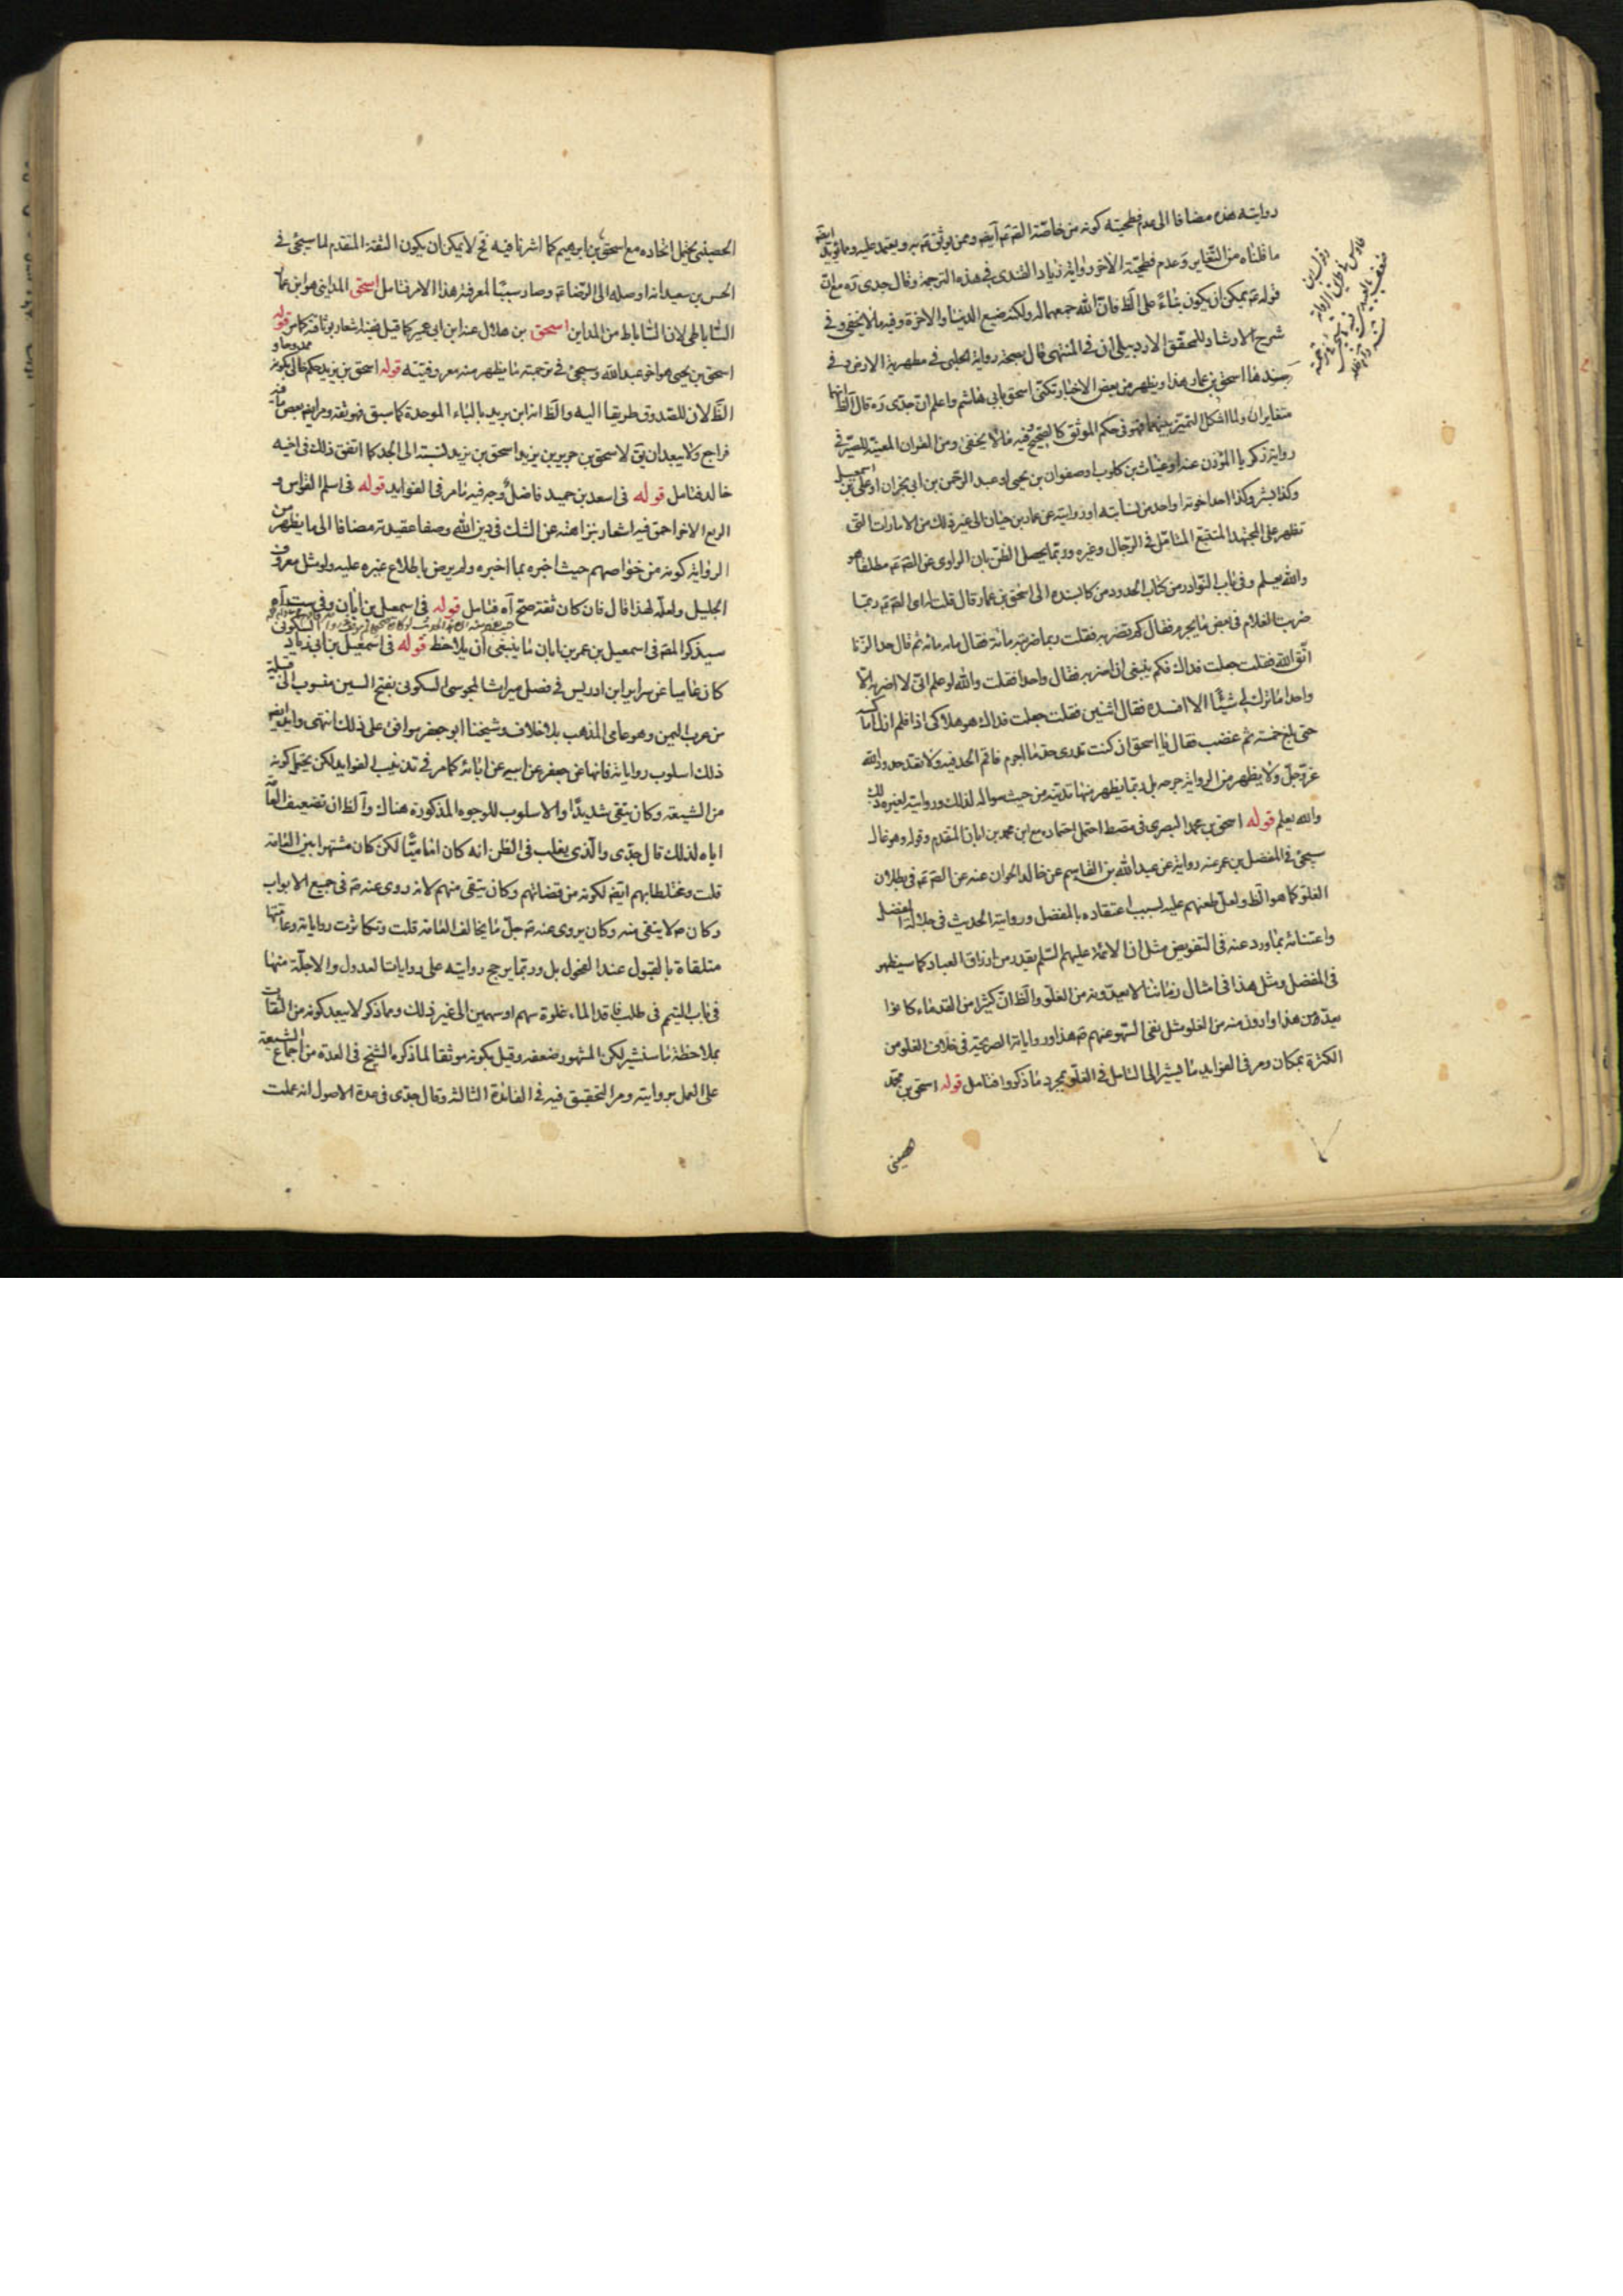 روايته هذه مضافا الى عدم فطحيته كونه من خاصّة الصّ ع آيضه وممن يوثق ع به ويعتمد عليه ومما يؤيد ايضه
ما قلناه من التغاير وعدم فطحيّة الآخر رواية زياد القندى فى هذه الترجمة وقال جدى ره مع ان
قوله ع يمكن ان يكون بناءً على الظ فان الله جمعهما له ولكنه ضيع الدنيا والاخرة وفيه ما لا يخفى وفى
شرح الارشاد للمحقق الاردبيلى ان فى المنتهى قال بصحة رواية الحلبى فى مطهرية الارض وفى
سندها اسحق بن عمار هذا ويظهر من بعض الاخبار تكنى اسحق بابى هاشم واعلم ان جدّى ره قال الظ انهما
متغايران ولما اشكل التميّز بينهما فهو فى حكم الموثق كالصحيح فيه ما لا يخفى ومن القران المعيّنة للصيرفى
رواية زكريا المؤذن عنه او غياث بن كلوب او صفوان بن يحيى او عبد الرحمن بن ابى نجران او على بن اسمعيل
وكذا بشر وكذا احد اخوته او احد من نسابته او روايته عن عمار بن حيان الى غير ذلك من الامارات التى
تظهر على المجتهد المتتبع المتامّل فى الرجال وغيره وربّما يحصل الظن بان الراوى عن الصّ ع مطلقا هو
والله يعلم وفى باب النوادر من كتاب الحدود من كا بسنده الى اسحق بن عمار قال قلت لابى الصّ ع ربما
ضربت الغلام فى بعض ما يجرم فقال كم تضربه فقلت ربما ضربته مائة فقال مائه مائه ثم قال حد الزنا
اتّق الله فقلت جعلت فداك فكم ينبغى ان اضربه فقال واحدا فقلت والله لو علم انى لا اضربه الّا
واحدا ما ترك لى شيئًا الا افسده فقال اثنين فقلت جعلت فداك هو هلاكى اذا فلم ازل اماكسه
حتى بلغ خمسه ثم غضب فقال يا اسحق ان كنت تدرى حد ما اجرم فاقم الحد فيه ولا تعد حدود الله
عزّ وجلّ ولا يظهر من الرواية جرحه بل ربّما يظهر منها تديّنه من حيث سواله لذلك وروايته لغيره ذلك
والله يعلم قوله اسحق بن محمد البصرى فى مصط احتمل اتحاده مع ابن محمد بن ابان المقدم وقوله وهو غال
سيجئ فى المفضل بن عمر عنه روايته عن عبد الله بن القاسم عن خالد الجوان عنه عن الصّ ع فى بطلان
الغلو كما هو الظ ولعلّ طعنهم عليه لسبب اعتقاده بالمفضل وروايته الحديث فى جلالة المفضل
واعتنائه بما ورد عنه فى التفويض مثل ان الائمة عليهم السّلم يقدرون ارزاق العباد كما سيظهر
فى المفضل ومثل هذا فى امثال زماننا لا يعدّونه من الغلو والظ انّ كثيرا من القدماء كانوا
يعدّون هذا وادون منه من الغلو مثل نفى السّهو عنهم ع هذا ورواياته الصريحة فى خلاف الغلو من
الكثرة بمكان ومر فى الفوايد ما يشير الى التامل فى الغلو بمجرد ما ذكروا فتامل قوله اسحق بن محمّد
الحصينى يحتمل اتحاده مع اسحق بن ابرهيم كما اشرنا فيه فح لا يمكن ان يكون الثقة المتقدم لما سيجئ فى
الحسن بن سعيد انه اوصله الى الرضا ع وصار سببًا لمعرفته هذا الامر فتامل اسحق المداينى هو ابن عمار
الساباطى لان الساباط من المداين اسحق بن هلال عنه ابن ابى عمير كما قيل ففيه اشعار بوثاقته كما مر قوله
اسحق بن يحيى هو اخو عبد الله وسيجئ فى ترجمته ما يظهر منه معروفيته قوله اسحق بن يزيد حكم خالى بكونه ممدوحا و
الظ لان للصدوق طريقا اليه والظ انه ابن بريد بالباء الموحدة كما سبق فهو ثقة ومر ايضه بعض ما فيه
فراجع ولا يبعد ان يق لاسحق بن جرير بن يزيد اسحق بن يزيد لنسبته الى الجد كما اتفق ذلك فى اخيه
خالد فتامل قوله فى اسعد بن حميد فاضلٌ وجه فيه ما مر فى الفوايد قوله فى اسلم القواس و
الربع الاخر احمق فيه اشعار بنزاهته عن الشك فى دين الله وصفا عقيدته مضافا الى ما يظهر من
الرواية كونه من خواصهم حيث اخبره بما اخبره ولم يرض باطلاع غيره عليه ولو مثل معروف
الجليل ولعله لهذا قال فان كان ثقة صحّ آه فتامل قوله فى اسمعيل بن ابان وفى ست آه
سيذكر المصّ فى اسمعيل بن عمر بن ابان ما ينبغى ان يلاحظ قوله فى اسمعيل بن ابى زياد السكونى
كان عاميا عن سرائر ابن ادريس فى فصل ميراث المجوسى السكونى بفتح السين منسوب الى قبيلة
من عرب اليمن وهو عامى المذهب بلا خلاف وشيخنا ابو جعفر موافق على ذلك انتهى وايّد ايضه
ذلك اسلوب رواياته فانها عن جعفر عن ابيه عن ابائه كما مر فى تذنيب الفوايد لكن يحتمل كونه
من الشيعة وكان يتقى شديدًا والاسلوب للوجوه المذكورة هناك والظ ان تضعيف العامّة
اياه لذلك قال جدّى والّذى يغلب فى الظن انه كان اماميًّا لكن كان مشتهرا بين العامة
قلت ومختلطا بهم ايضه لكونه من قضاتهم وكان يتقى منهم لانه روى عنه ع فى جميع الابواب
وكان ع لا يتقى منه وكان يروى عنه ع جلّ ما يخالف العامة قلت وتكاثرت رواياته وعامّتها
متلقاة بالقبول عند الفحول بل وربّما يرجح روايته على روايات العدول والاجلّة منها
فى باب التيمم فى طلب فاقد الماء غلوة سهم او سهمين الى غير ذلك ومما ذكر لا يبعد كونه من الثقات
بملاحظة ما سنشير لكن المشهور ضعفه وقيل بكونه موثقا لما ذكره الشيخ فى العدة من اجماع الشيعة
على العمل بروايته ومر التحقيق فيه فى الفائدة الثالثة وقال جدّى فى عدة الاصول انه عملت